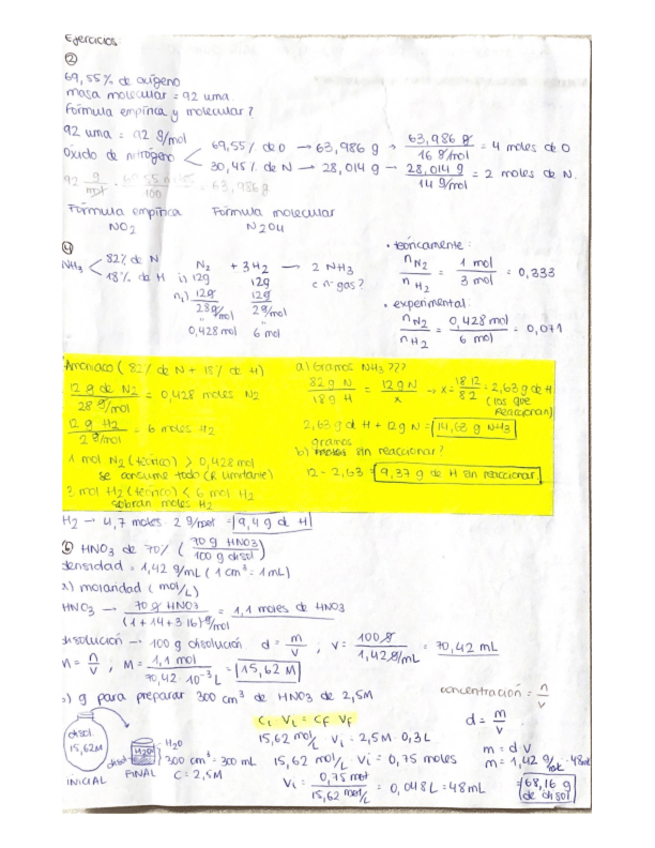 Ejercicios:
②
69,55% de oxígeno
masa molecular = 92 uma.
Fórmula empírica y molecular?
92 uma = 92 g/mol
Óxido de nitrógeno < 69,55% de O → 63,986 g → 63,986 g / 16 g/mol = 4 moles de O
30,45% de N → 28,014 g → 28,014 g / 14 g/mol = 2 moles de N.
92 g/mol · / 100 = 63,986 g
Fórmula empírica Fórmula molecular
NO2 N2O4
④
NH3 < 82% de N
18% de H
N2 + 3H2 → 2 NH3
i) 12g 12g c n· gas?
ni) 12g / 28 g/mol 12g / 2 g/mol
0,428 mol 6 mol
• teóricamente:
nN2 / nH2 = 1 mol / 3 mol = 0,333
• experimental:
nN2 / nH2 = 0,428 mol / 6 mol = 0,071
Amoniaco (82% de N + 18% de H)
12 g de N2 / 28 g/mol = 0,428 moles N2
12 g H2 / 2 g/mol = 6 moles H2
1 mol N2 (teórico) > 0,428 mol
se consume todo (R limitante)
3 mol H2 (teórico) < 6 mol H2
sobran moles H2
a) Gramos NH3 ???
82 g N / 18 g H = 12 g N / x → x = 18·12 / 82 = 2,63 g de H
(los que reaccionan)
2,63 g de H + 12 g N = 14,63 g NH3
gramos
b) moles sin reaccionar?
12 - 2,63 = 9,37 g de H sin reaccionar
H2 → 4,7 moles · 2 g/mol = 9,4 g de H
⑥ HNO3 de 70% (70 g HNO3 / 100 g disol)
densidad = 1,42 g/mL (1 cm³ = 1 mL)
a) molaridad (mol/L)
HNO3 → 70 g HNO3 / (1 + 14 + 3·16) g/mol = 1,1 moles de HNO3
disolución → 100 g disolución d = m / v ; V = 100 g / 1,42 g/mL = 70,42 mL
M = n / v ; M = 1,1 mol / 70,42 · 10⁻³ L = 15,62 M
b) g para preparar 300 cm³ de HNO3 de 2,5M
concentración = n / v
Ci · Vi = Cf · Vf
d = m / v
15,62 mol/L · Vi = 2,5 M · 0,3 L
15,62 mol/L · Vi = 0,75 moles
Vi = 0,75 mol / 15,62 mol/L = 0,048 L = 48 mL
m = d · v
m = 1,42 g/mL · 48 mL
= 68,16 g de disol
disol. 15,62M
INICIAL
disol
H2O
H2O
300 cm³ = 300 mL
FINAL C = 2,5M